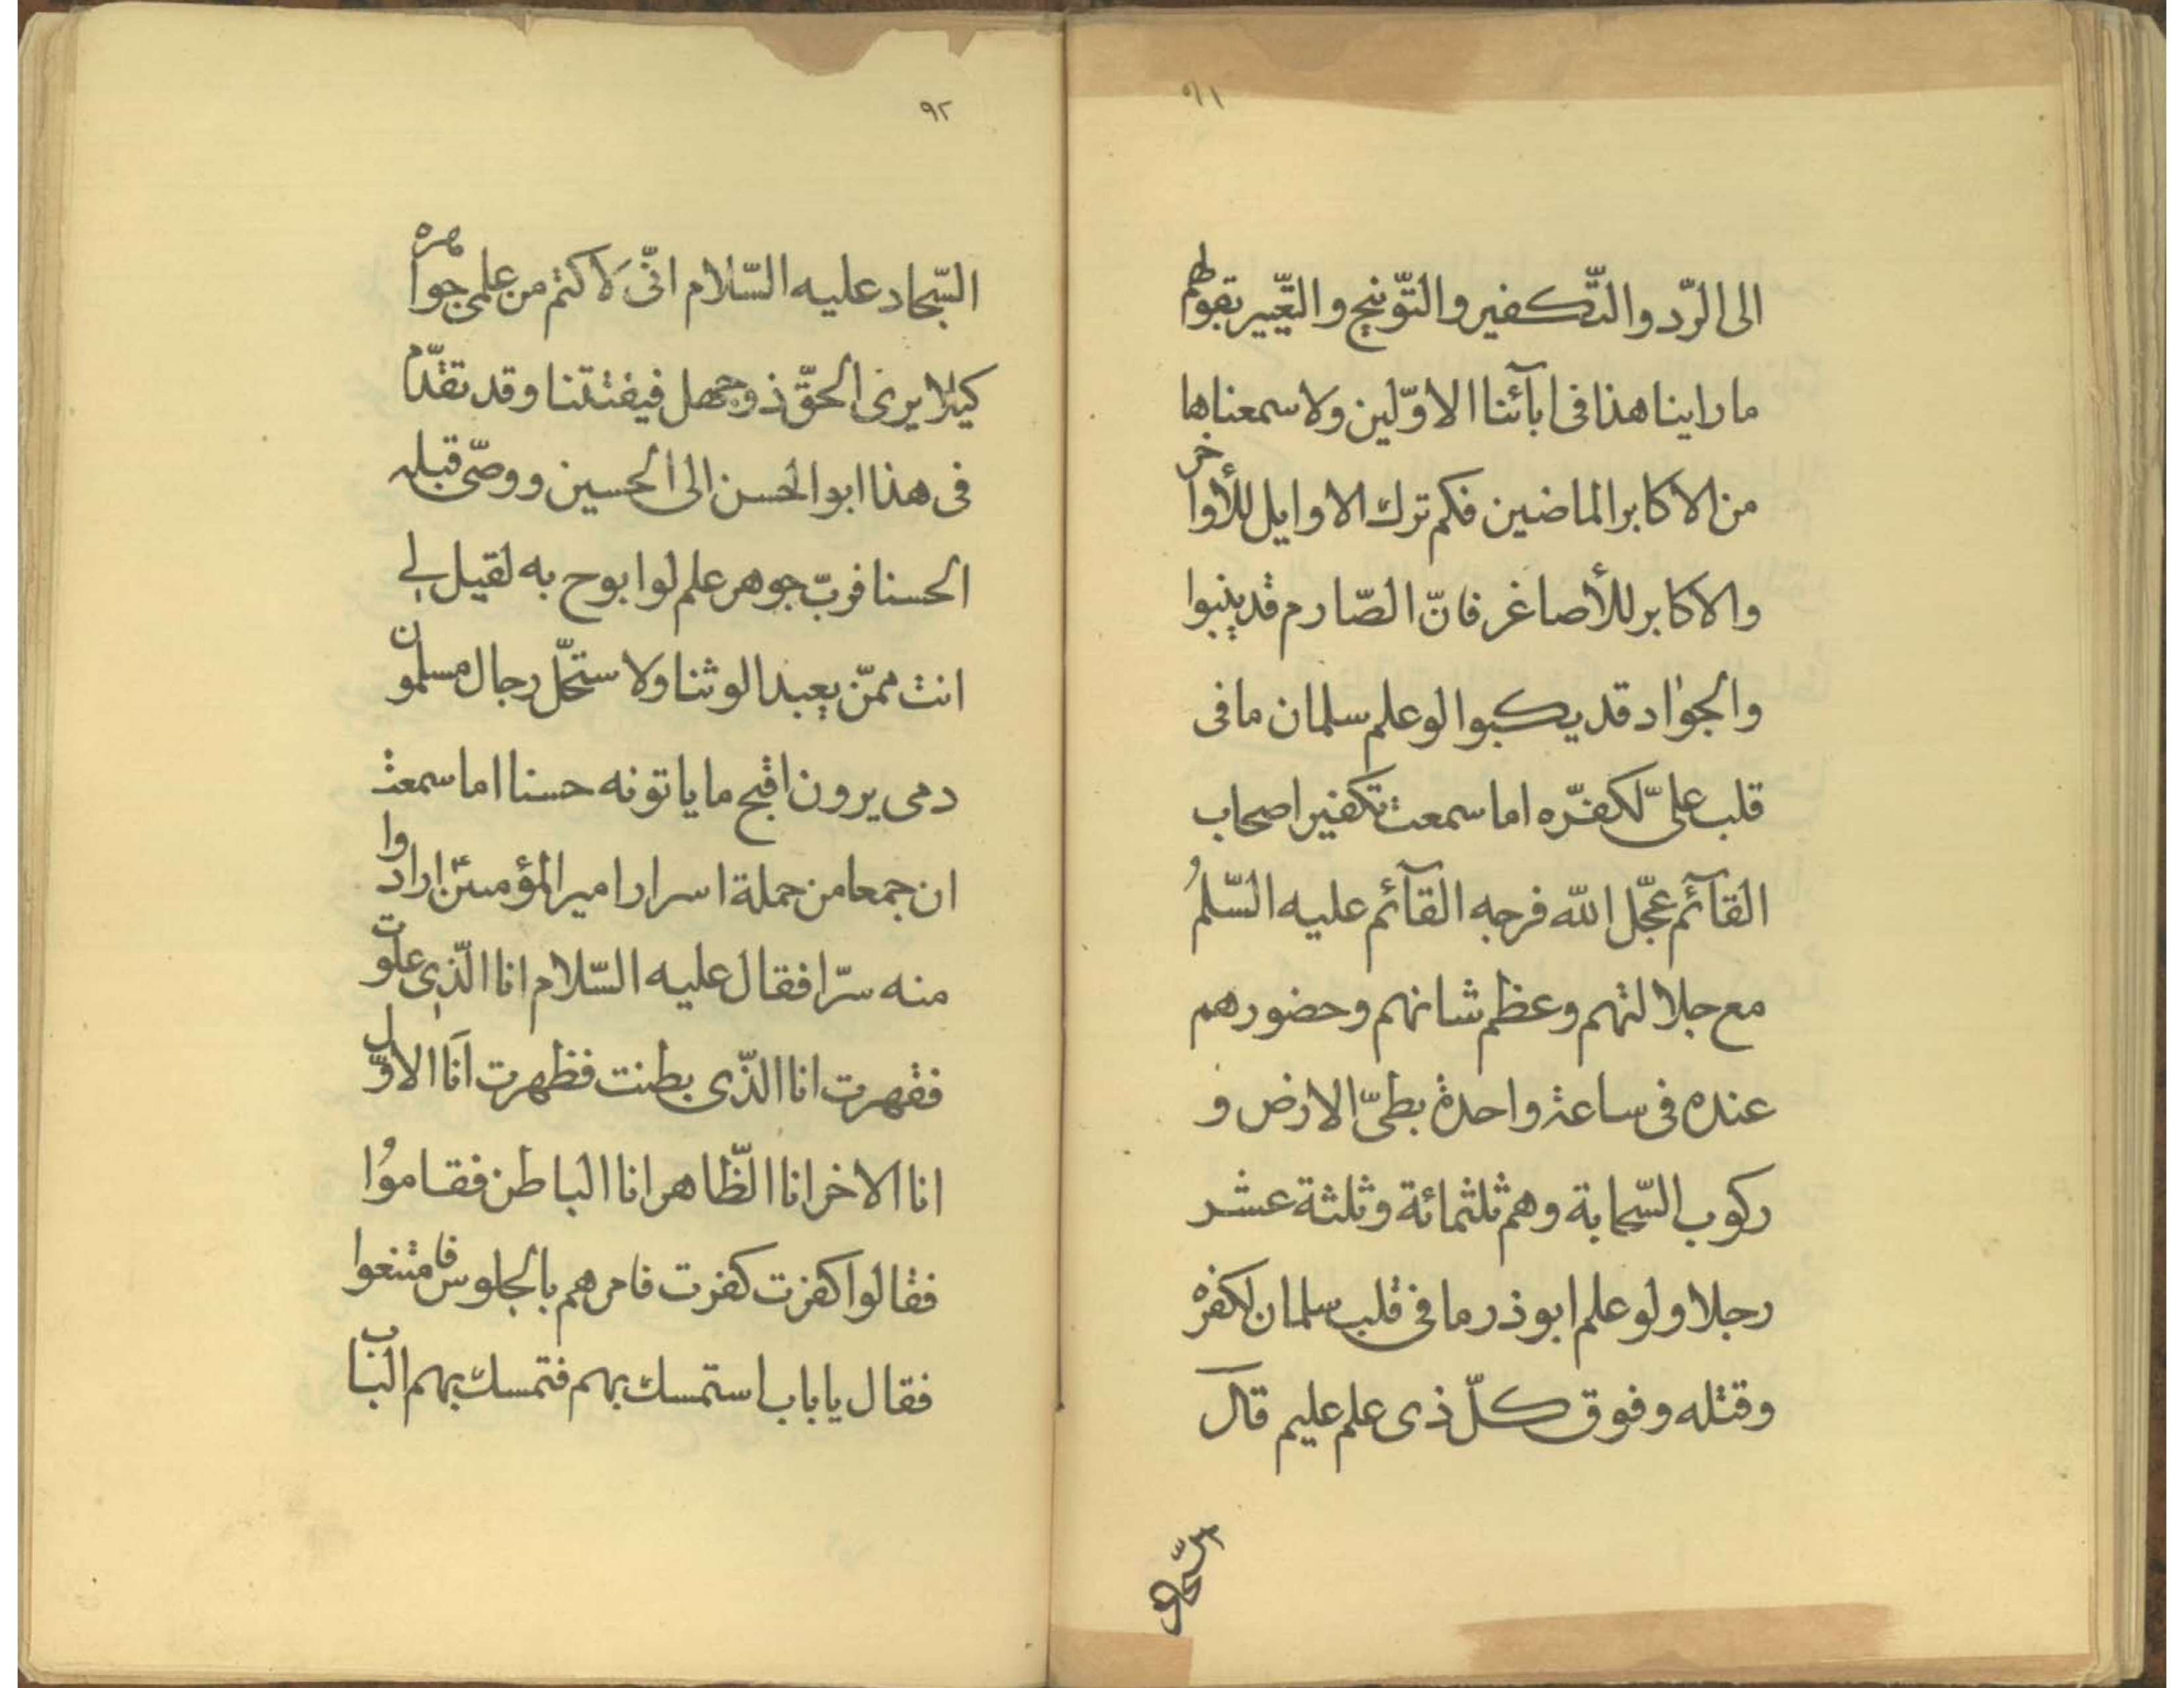 ٩١
الى الرّد والتّكفير والتّوبيخ والتّعيير بقولهم
ما راينا هذا فى ابآئنا الاوّلين ولا سمعنا بها
من الاكابر الماضين فكم ترك الاوايل للأواخر
والاكابر للأصاغر فانّ الصّارم قد ينبوا
والجواد قد يكبوا لو علم سلمان ما فى
قلب علىّ لكفّره اما سمعت تكفير اصحاب
القآئم عجّل الله فرجه القآئم عليه السّلم
مع جلالتهم وعظم شانهم وحضورهم
عنده فى ساعة واحدة بطىّ الارض و
ركوب السّحابة وهم ثلثمائة وثلثة عشر
رجلا ولو علم ابوذر ما فى قلب سلمان لكفره
وقتله وفوق كلّ ذى علم عليم قال
السّجاد
٩٢
السّجاد عليه السّلام انّى لاكتم من علمى جواهره
كيلا يرى الحقّ ذو جهل فيفتتنا وقد تقدّم
فى هذا ابوالحسن الى الحسين ووصّى قبله
الحسنا فربّ جوهر علم لو ابوح به لقيل لى
انت ممّن يعبد الوثنا ولاستحلّ رجال مسلمون
دمى يرون اقبح ما ياتونه حسنا اما سمعت
ان جمعا من حملة اسرار اميرالمؤمنين ارادوا
منه سرّا فقال عليه السّلام انا الّذى علوت
فقهرت انا الّذى بطنت فظهرت انا الاوّل
انا الاخر انا الظّاهر انا الباطن فقاموا
فقالوا كفرت كفرت فامرهم بالجلوس فامتنعوا
فقال يا باب استمسك بهم فتمسك بهم الباب